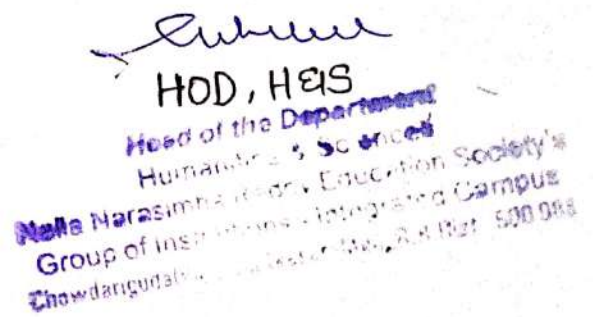 HOD, H&S
Head of the Department
Humanities & Sciences
Nalla Narasimha Reddy Education Society's
Group of Institutions - Integrated Campus
Chowdariguda Dist 500 088